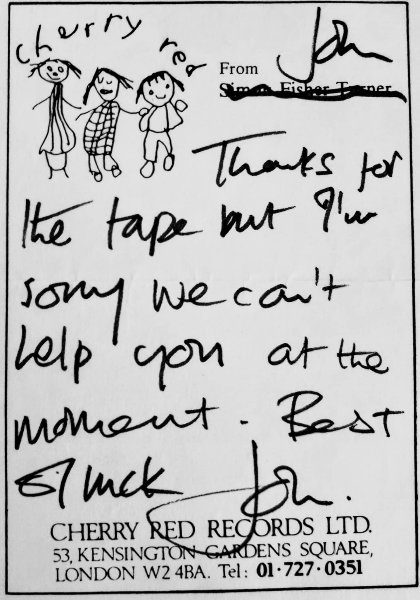 cherry red
John
From
Simon Fisher Turner
Thanks for
the tape but I'm
sorry we can't
help you at the
moment. Best
of luck
John.
CHERRY RED RECORDS LTD.
53, KENSINGTON GARDENS SQUARE,
LONDON W2 4BA. Tel: 01·727·0351